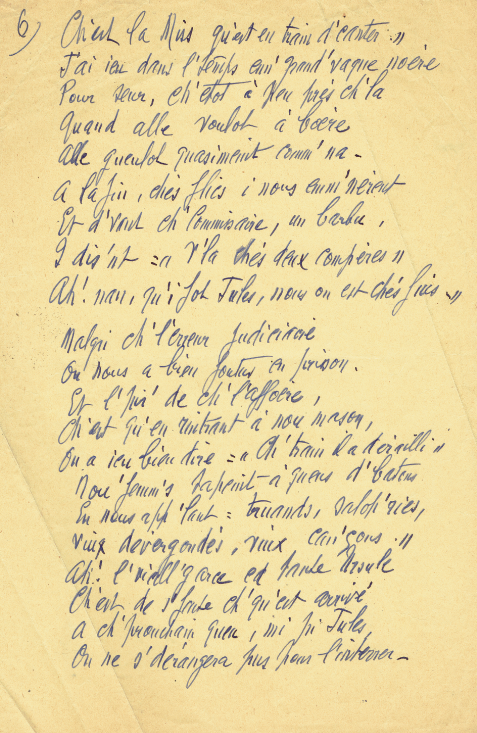 6)
Ch'est la Miss qu'est en train d'canter »
J'ai ieu dans l'temps enn' grand' vaque noère
Pour seur, ch'étot à peu près ch'la
Quand alle voulot à boère
Alle gueulot quasimint comm' na -
A la fin, chés flics i nous emm'nèrent
Et d'vant ch'Commissaire, un barbu,
I dis'nt = « V'là chés deux compères »
Ah! nan, qu'i fot Jules, nous on est chés fius - »
Malgré ch'l'erreur judiciaire
On nous a bien foutus en prison.
Et l'pir' de ch'l'affoère,
Ch'est qu'en rintrant à nou mason,
On a ieu bien dire = « Ch'train il a dérailli »
Nou' femm's tapeint à queus d'batons
En nous app'lant = truands, salop'ries,
Viux dévergondés, viux can'çons. »
Ah! l'vieill' garce ed tante Ursule
Ch'est de s'faute ch'qu'est arrivé
A ch'prouchain queu, mi pi Jules
On ne s'dérangera pus pour l'interrer -